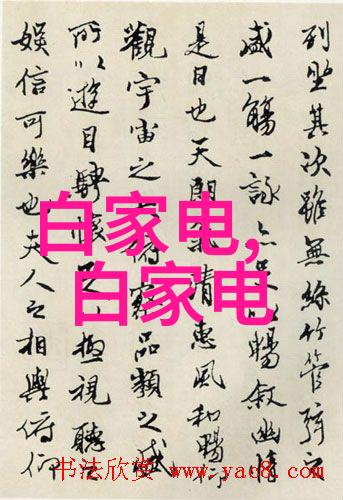 列坐其次雖無絲竹管弦之
盛一觴一詠亦足以暢敘幽情
是日也天朗氣清惠風和暢仰
觀宇宙之大俯察品類之盛
所以遊目騁懷足以極視聽之
娛信可樂也夫人之相與俯仰
白家电,
白家电
书法欣赏 www.yac8.com